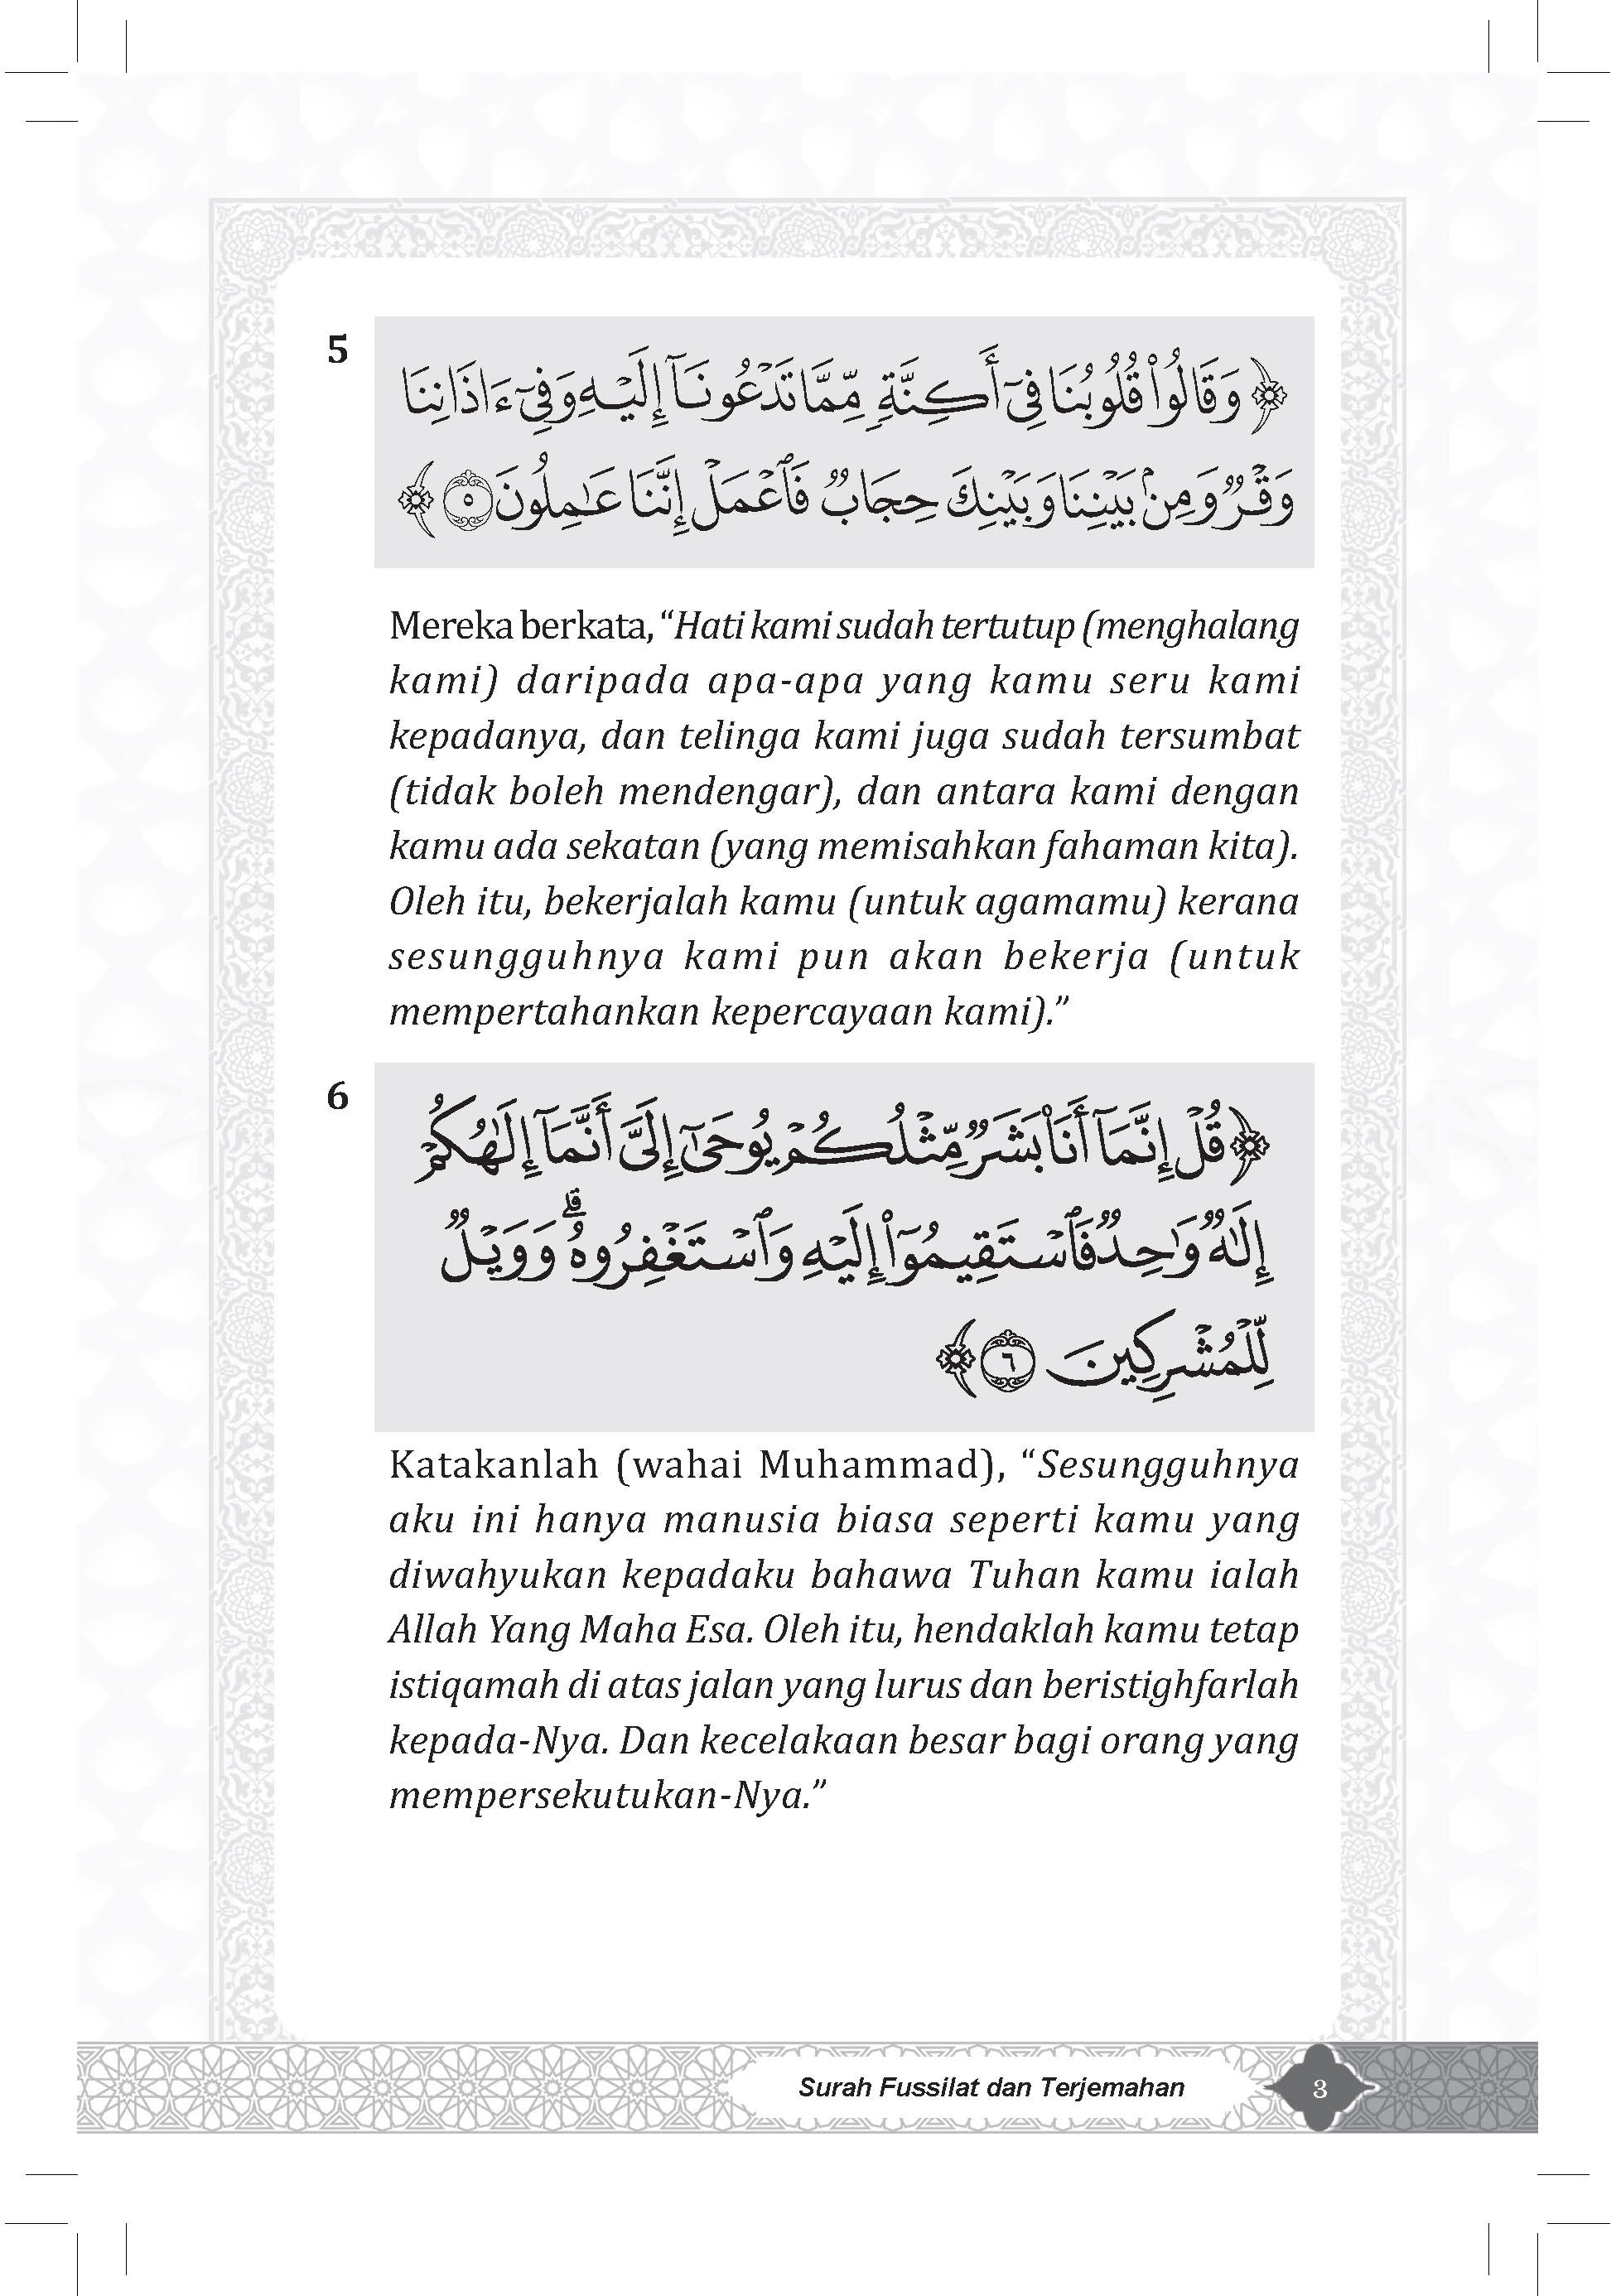 5
﴿ وَقَالُوا۟ قُلُوبُنَا فِىٓ أَكِنَّةٍۢ مِّمَّا تَدْعُونَآ إِلَيْهِ وَفِىٓ ءَاذَانِنَا
وَقْرٌۭ وَمِنۢ بَيْنِنَا وَبَيْنِكَ حِجَابٌۭ فَٱعْمَلْ إِنَّنَا عَـٰمِلُونَ ٥ ﴾
Mereka berkata, “Hati kami sudah tertutup (menghalang
kami) daripada apa-apa yang kamu seru kami
kepadanya, dan telinga kami juga sudah tersumbat
(tidak boleh mendengar), dan antara kami dengan
kamu ada sekatan (yang memisahkan fahaman kita).
Oleh itu, bekerjalah kamu (untuk agamamu) kerana
sesungguhnya kami pun akan bekerja (untuk
mempertahankan kepercayaan kami).”
6
﴿ قُلْ إِنَّمَآ أَنَا۠ بَشَرٌۭ مِّثْلُكُمْ يُوحَىٰٓ إِلَىَّ أَنَّمَآ إِلَـٰهُكُمْ
إِلَـٰهٌۭ وَٰحِدٌۭ فَٱسْتَقِيمُوٓا۟ إِلَيْهِ وَٱسْتَغْفِرُوهُ ۗ وَوَيْلٌۭ
لِّلْمُشْرِكِينَ ٦ ﴾
Katakanlah (wahai Muhammad), “Sesungguhnya
aku ini hanya manusia biasa seperti kamu yang
diwahyukan kepadaku bahawa Tuhan kamu ialah
Allah Yang Maha Esa. Oleh itu, hendaklah kamu tetap
istiqamah di atas jalan yang lurus dan beristighfarlah
kepada-Nya. Dan kecelakaan besar bagi orang yang
mempersekutukan-Nya.”
Surah Fussilat dan Terjemahan 3